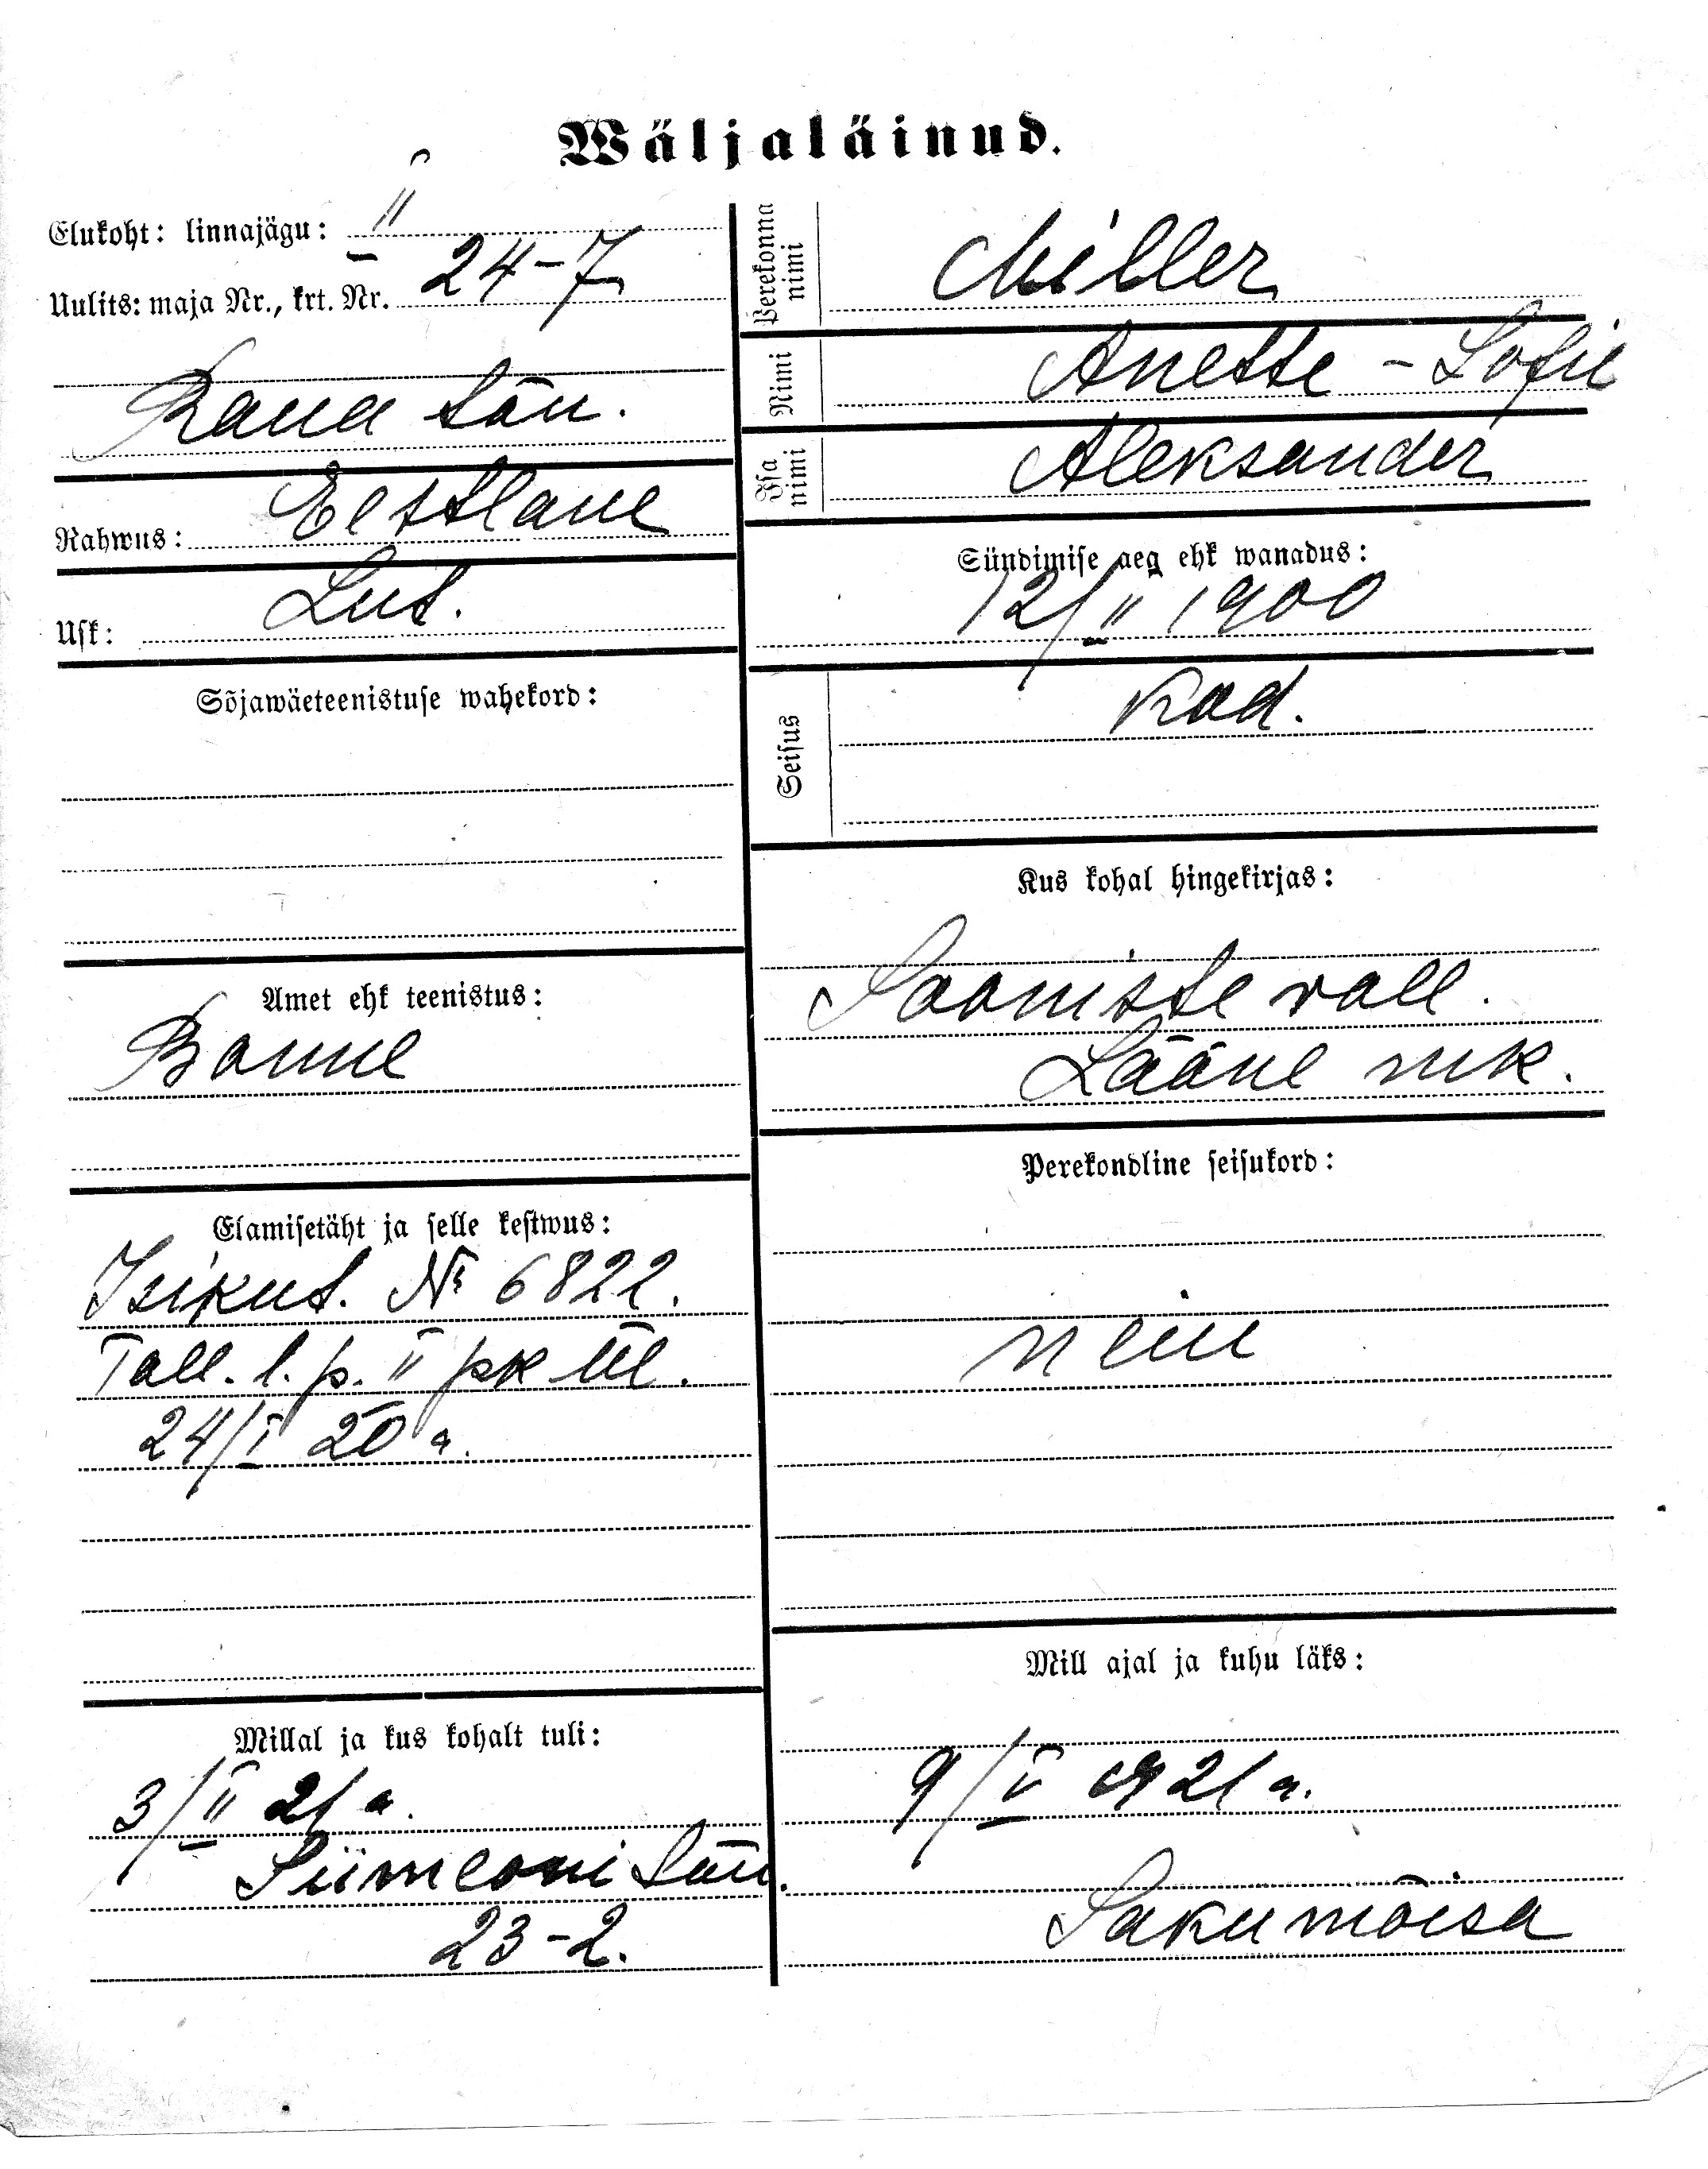 Wäljaläinud.
Elukoht: linnajägu: II
Uulits: maja Nr., krt. Nr. 24-7
Raua tän.
Rahwus: Eestlane
Usk: Lut.
Sõjawäeteenistuse wahekord:
Amet ehk teenistus:
Bonne
Elamisetäht ja selle kestwus:
Isikut. № 6822.
Tall. l. p. II pk ül.
24/I 20 a.
Millal ja kus kohalt tuli:
3/II 21 a.
Siimeoni tän.
23-2.
Perekonna nimi Miller
Nimi Anette - Sofie
Isa nimi Aleksander
Sündimise aeg ehk wanadus:
12/II 1900
Seisus kod.
Kus kohal hingekirjas:
Sooniste vall.
Lääne mk.
Perekondline seisukord:
neiu
Mill ajal ja kuhu läks:
9/V 21 a.
Saku mõisa